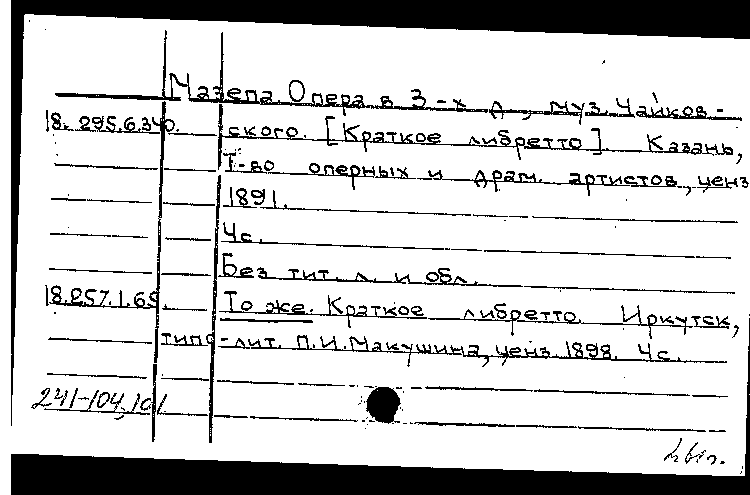 Мазепа. Опера в 3-х д., муз. Чайков-
18. 295.6.340. ского. [Краткое либретто]. Казань,
Т-во оперных и драм. артистов, ценз.
1891.
4с.
Без тит. л. и обл.
18.257.1.65. То же. Краткое либретто. Иркутск,
типо-лит. П.И.Макушина, ценз. 1898. 4с.
241-104,101